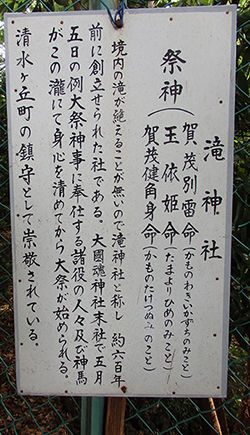 滝神社
祭神(
賀茂別雷命(かものわきいかずちのみこと)
玉依姫命(たまよりひめのみこと)
賀茂健角身命(かものたけつぬみのこと)
境内の滝が絶えることが無いので滝神社と称し 約六百年
前に創立せられた社である。大國魂神社末社で五月
五日の例大祭神事に奉仕する諸役の人々及び神馬
がこの瀧にて身心を清めてから大祭が始められる。
清水ヶ丘町の鎮守として崇敬されている。